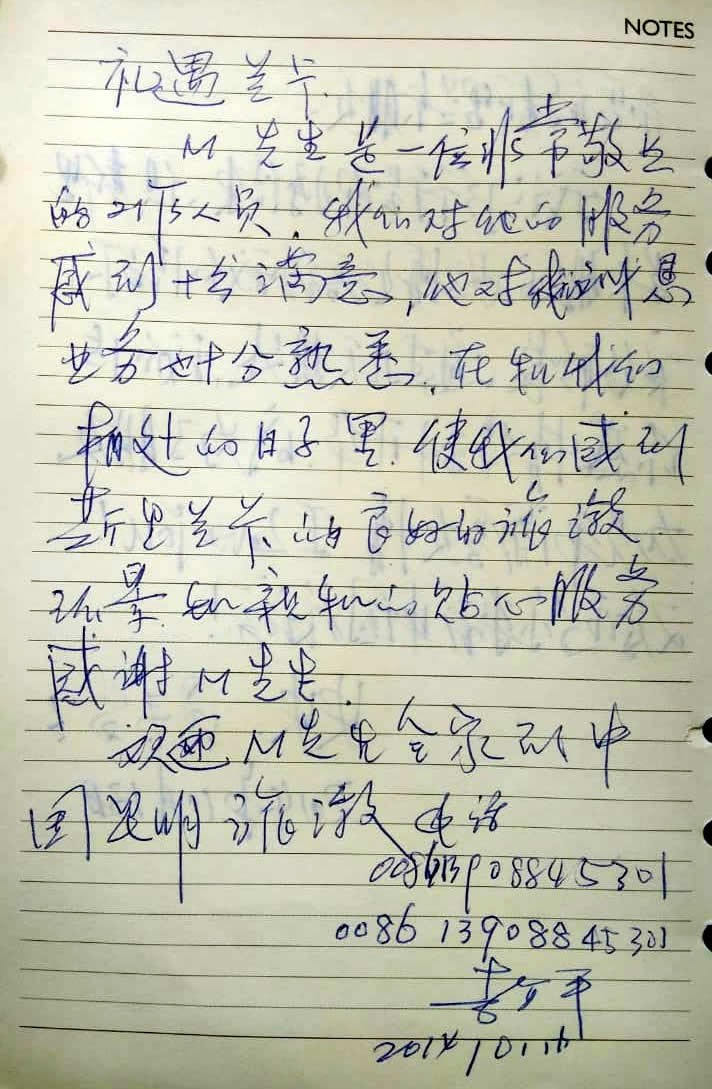 NOTES
礼遇兰卡
M先生是一位非常敬业
的司机人员，我们对他的服务
感到十分满意，他对我
业务也十分熟悉。在和我们
相处的日子里，使我们感到
斯里兰卡的良好的旅游
环景和亲和的贴心服务
感谢M先生
欢迎M先生全家到中
国昆明旅游 电话
008613908845301
0086 13908845301
李 平